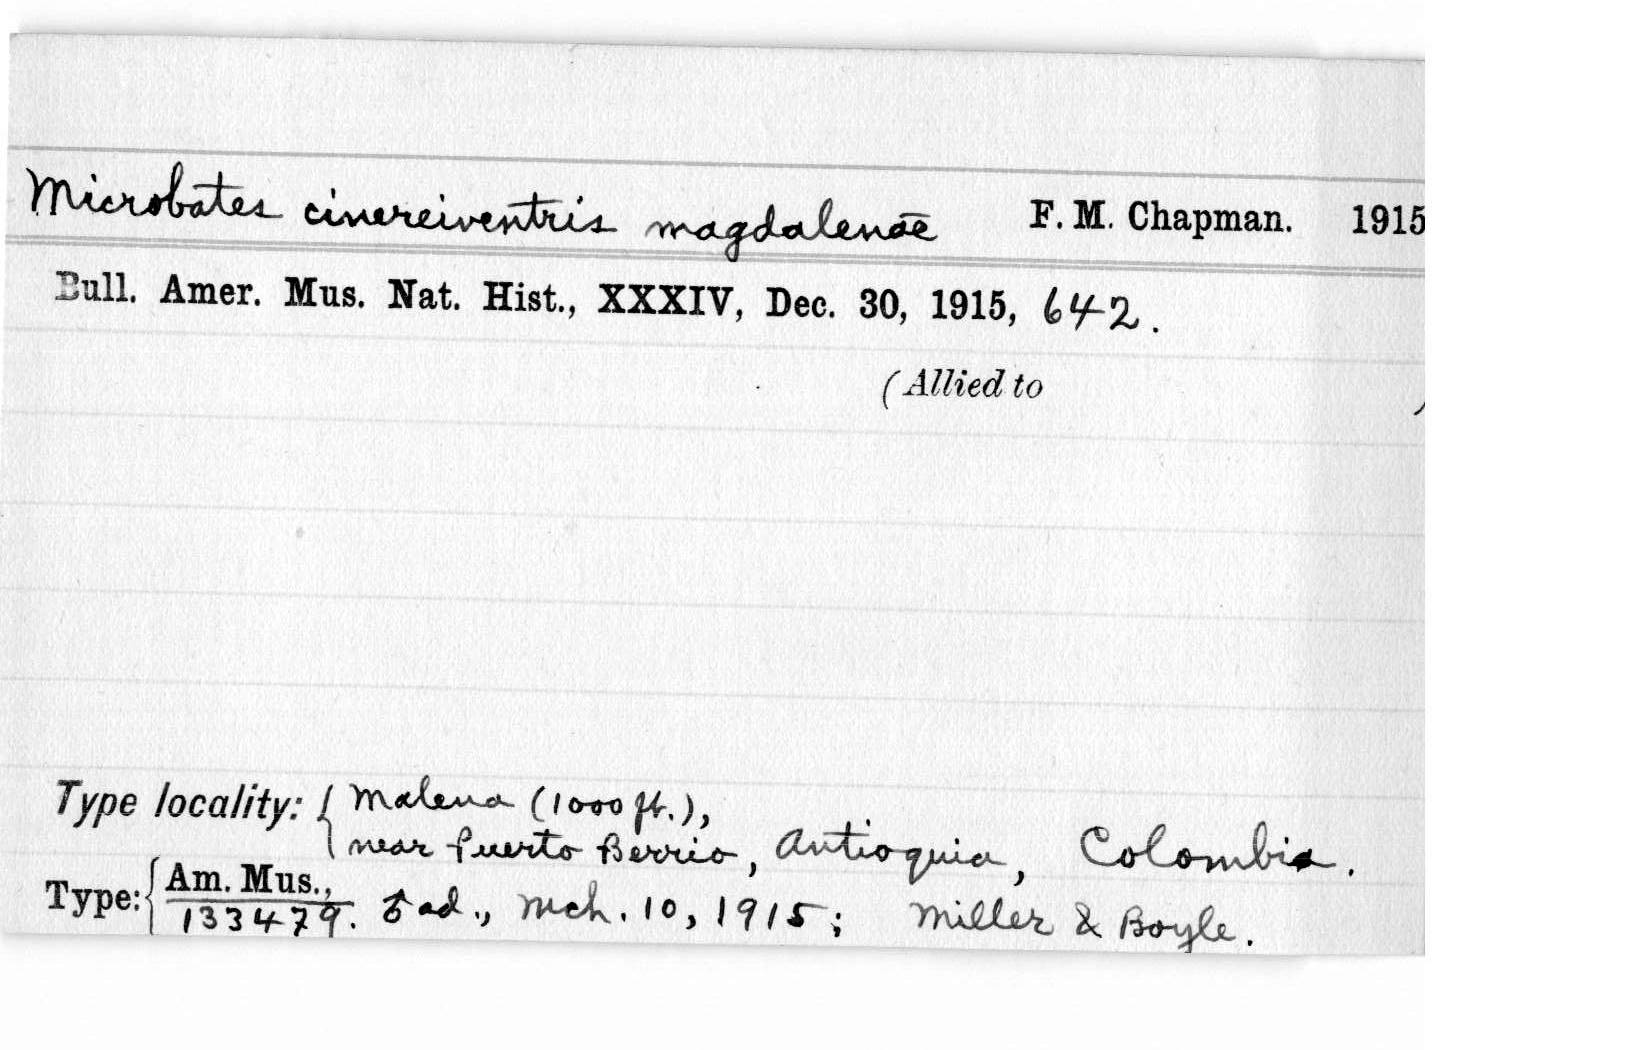 Microbates cinereiventris magdalenae F. M. Chapman. 1915
Bull. Amer. Mus. Nat. Hist., XXXIV, Dec. 30, 1915, 642.
(Allied to )
Type locality: { Malena (1000 ft.),
near Puerto Berrio, Antioquia, Colombia.
Type: { Am. Mus.,
133479. ♂ ad., Mch. 10, 1915; Miller & Boyle.